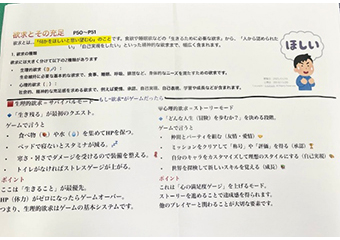 欲求とその充足 P50～P51
欲求とは…「何かをほしいと望む心」のことです。食欲や睡眠欲などの「生きるために必要な欲求」から、「人から認められた
い」「自己実現をしたい」といった精神的な欲求まで、幅広く含まれます。
1. 欲求の種類
欲求には大きく分けて以下の2種類があります
・生理的欲求
生命維持に必要な基本的な欲求で、食事、睡眠、呼吸、排泄など、身体的なニーズを満たすための欲求です。
・心理的欲求
社会的、精神的な充足感を求める欲求で、例えば愛情、承認、自己実現、自己表現、学習や成長などが含まれます。
ほしい
もし「欲求」がゲームだったら
生理的欲求＝サバイバルモード
◆「生き残る」が最初のクエスト。
ゲームで言うと
・食べ物や水を集めてHPを保つ。
・ベッドで寝ないとスタミナが減る。
・寒さ・暑さでダメージを受けるので装備を整える。
・トイレがなければストレスゲージが上がる。
ポイント
ここは「生きること」が最優先。
HP（体力）がゼロになったらゲームオーバー。
つまり、生理的欲求はゲームの基本システムです。
心理的欲求＝ストーリーモード
◆「どんな人生（冒険）を歩むか？」を決める段階。
ゲームで言うと
・仲間とパーティを組む（友情・愛情）
・ミッションをクリアして「称号」や「評価」を得る（承認）
・自分のキャラをカスタマイズして理想のスタイルにする（自己実現）
・世界を探検して新しいスキルを覚える（成長）
ポイント
これは「心の満足度ゲージ」を上げるモード。
ストーリーを進めることで達成感を得られます。
他のプレイヤーと関わることが大切な要素です。